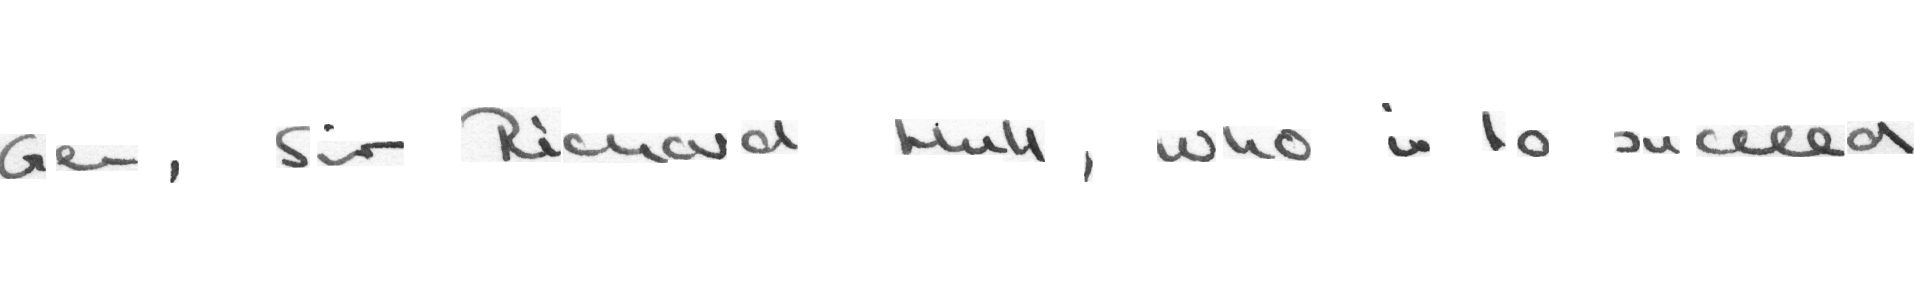 Gen, Sir Richard Hull, who is to succeed